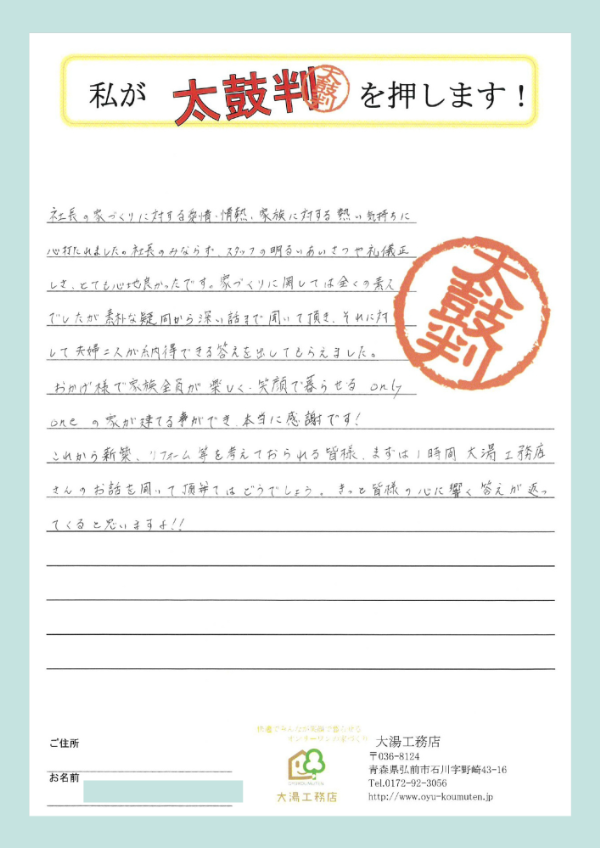 私が 太鼓判 太鼓判 を押します！
社長の家づくりに対する愛情・情熱、家族に対する熱い気持ちに
心打たれました。社長のみならず、スタッフの明るいあいさつや礼儀正
しさ、とても心地良かったです。家づくりに関しては全くの素人
でしたが素朴な疑問から深い話まで聞いて頂き、それに対
して夫婦二人が納得できる答えを出してもらえました。
太鼓判
おかげ様で家族全員が楽しく、笑顔で暮らせる only
one の家が建てる事ができ、本当に感謝です！
これから新築、リフォーム等を考えておられる皆様、まずは1時間 大湯工務店
さんのお話を聞いて頂いてはどうでしょう。きっと皆様の心に響く答えが返っ
てくると思いますよ!!
ご住所
お名前
快適でみんなが笑顔で暮らせる
オンリーワンの家づくり
大湯工務店
大湯工務店
〒036-8124
青森県弘前市石川字野崎43-16
Tel.0172-92-3056
http://www.oyu-koumuten.jp